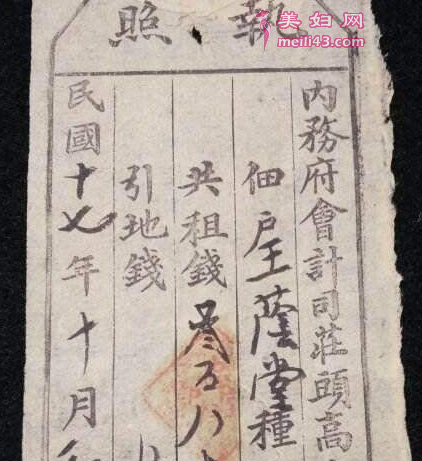 執照
美妇网
meili43.com
内務府會計司莊頭高
佃戶王蔭堂種
共租錢叁百八
引地錢
民國十七年十月